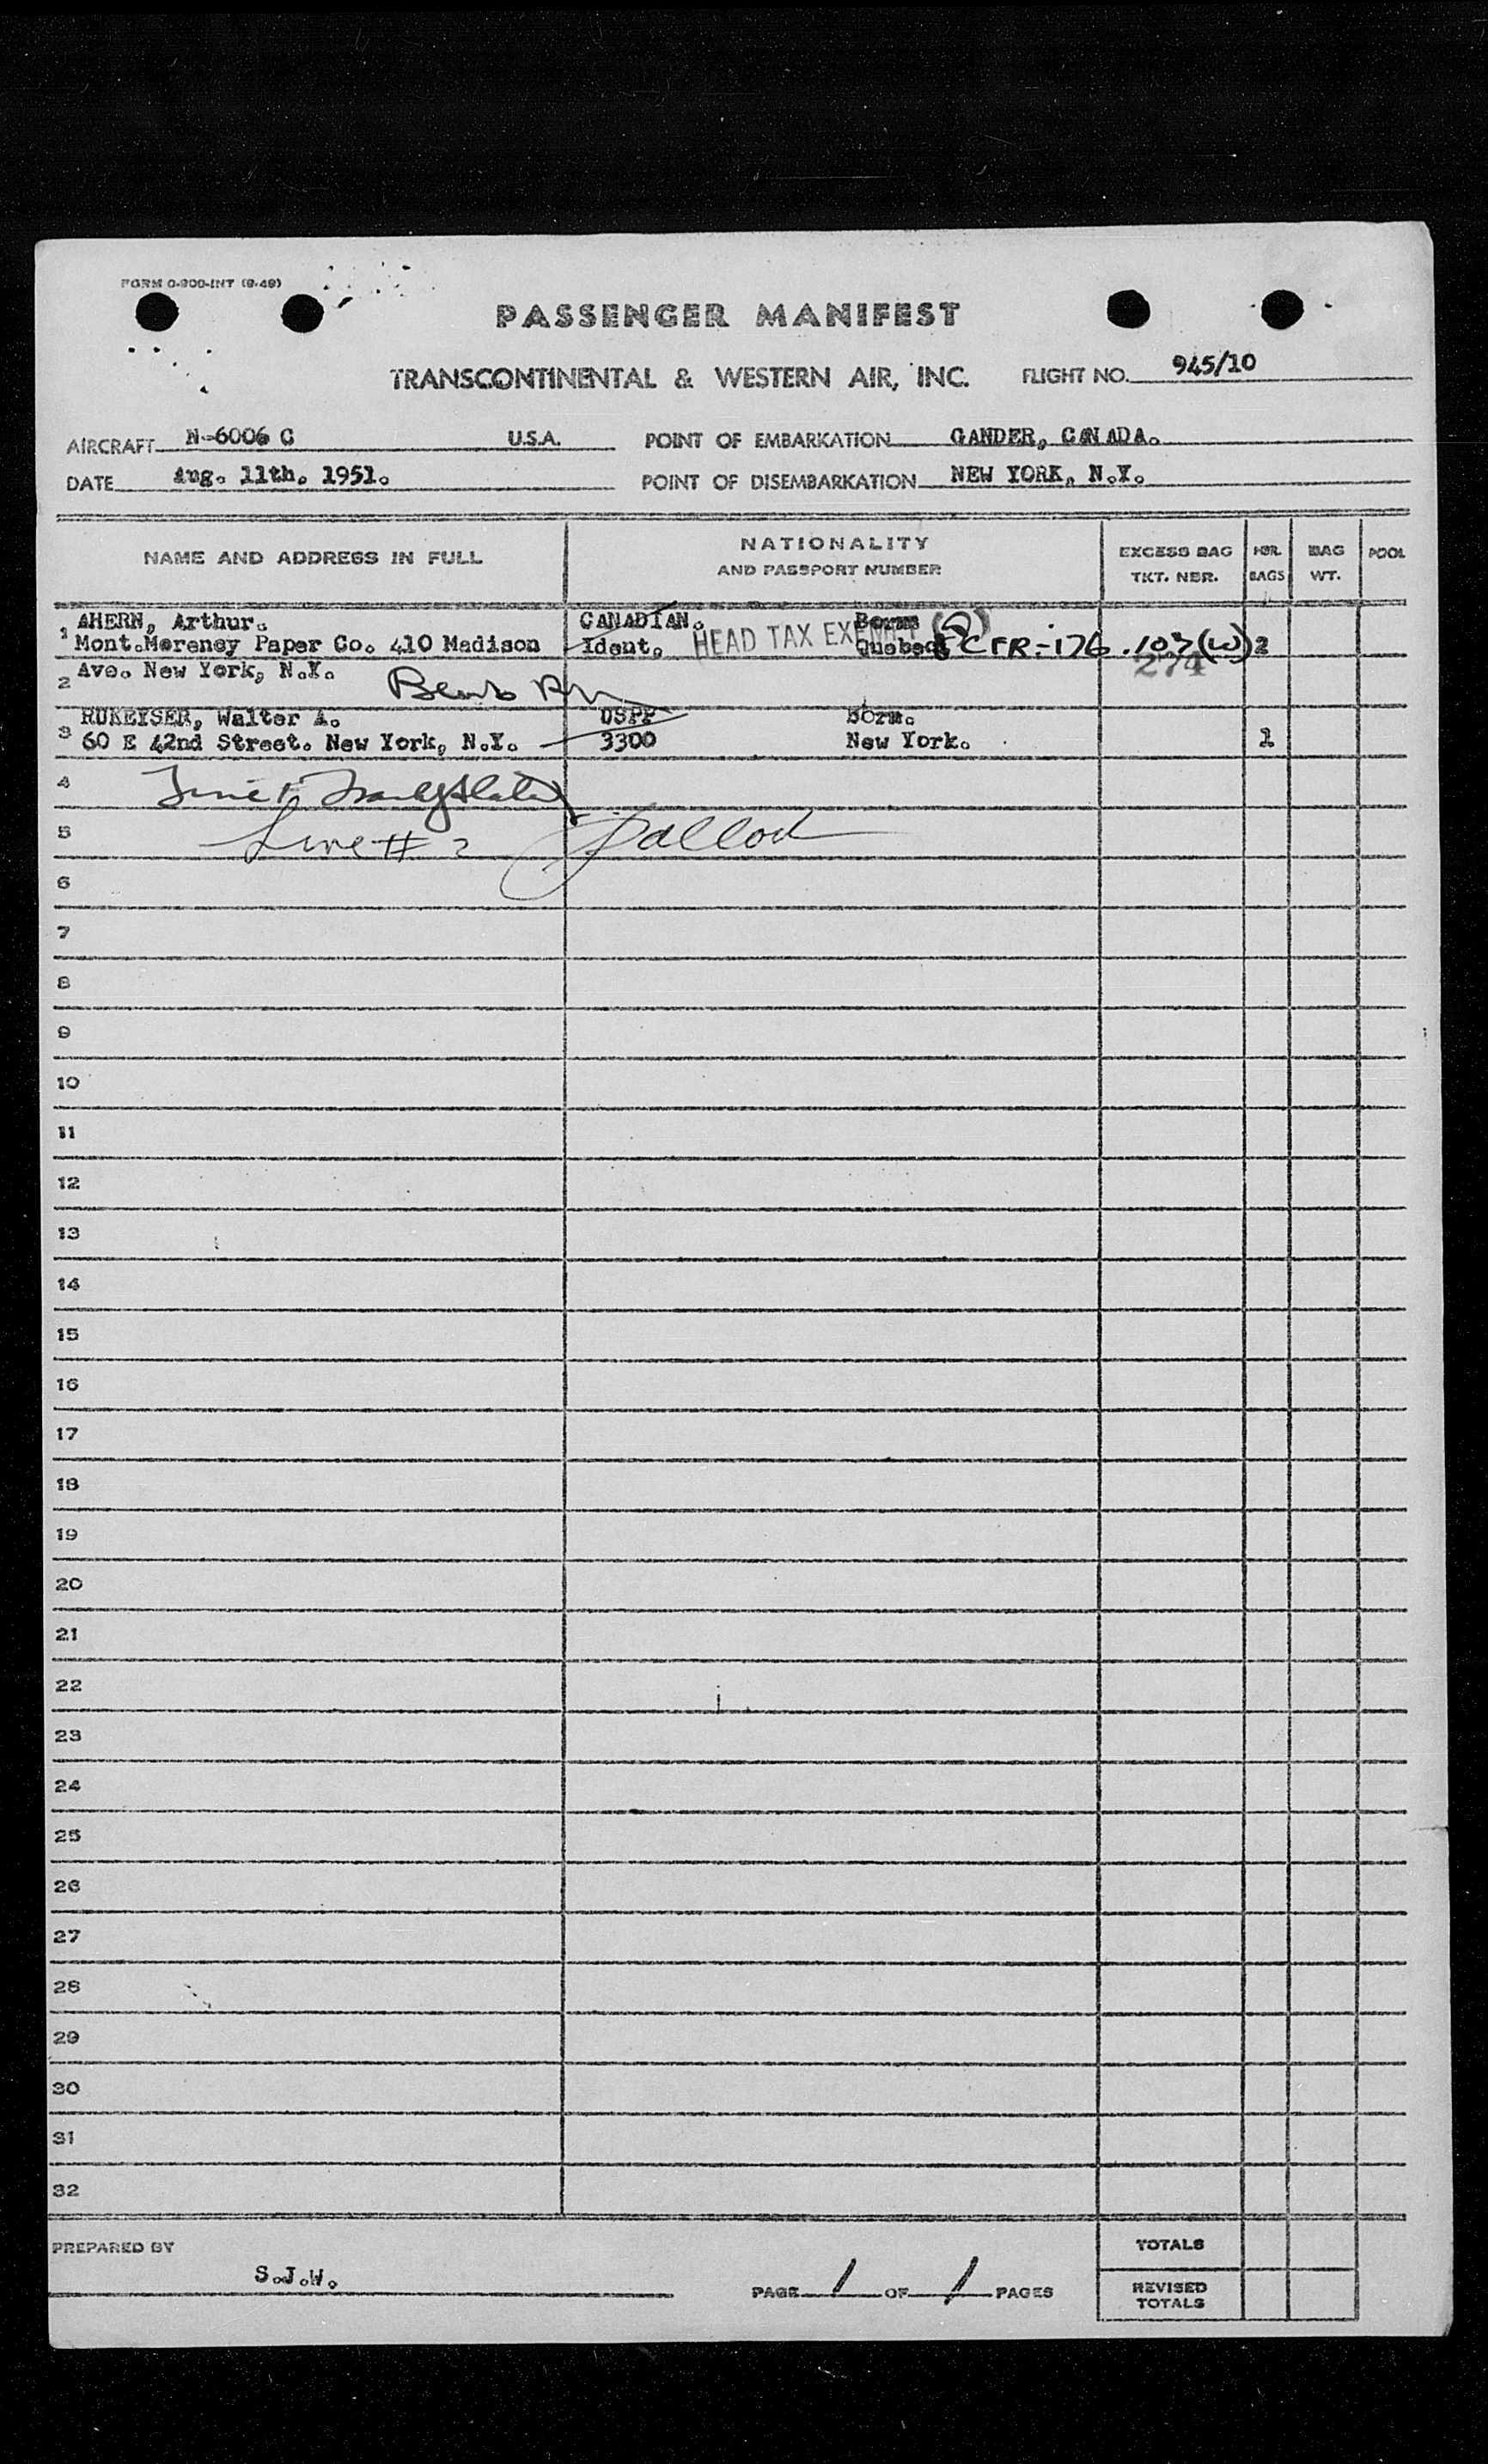 FORM O-900-INT (9-49)
PASSENGER MANIFEST
TRANSCONTINENTAL & WESTERN AIR, INC. FLIGHT NO. 945/10
AIRCRAFT N-6006 C U.S.A. POINT OF EMBARKATION GANDER, CANADA.
DATE Aug. 11th. 1951. POINT OF DISEMBARKATION NEW YORK, N.Y.
NAME AND ADDRESS IN FULL NATIONALITY AND PASSPORT NUMBER EXCESS BAG TKT. NBR. NBR. BAGS BAG WT. POOL
1 AHERN, Arthur. CANADIAN. Born
Mont.Moreney Paper Co. 410 Madison Ident. HEAD TAX EXEMPT Quebec 8 CFR-176.107(W) 2
2 Ave. New York, N.Y. 274
3 RUKEYSER, Walter A. USPP Born.
60 E 42nd Street. New York, N.Y. 3300 New York. 1
4
5 Line # 2
6
7
8
9
10
11
12
13
14
15
16
17
18
19
20
21
22
23
24
25
26
27
28
29
30
31
32
PREPARED BY S.J.W. PAGE 1 OF 1 PAGES
TOTALS
REVISED TOTALS